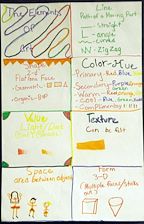 The Elements
Of
Art
Line
Path of a Moving Point
Straight
angle
curved
Zig Zag
Shape
2-d
Flat and Face
Geometric
organic
Color-Hue
Primary-Red, Blue
Secondary-Purple, Orange
Green
Warm-Red, Orange
Cool-Blue, Green
Complimentary
Value
Light/Dark
Texture
Can be felt
Space
area between objects
Form
3-D
(Multiple faces/sticks
out)